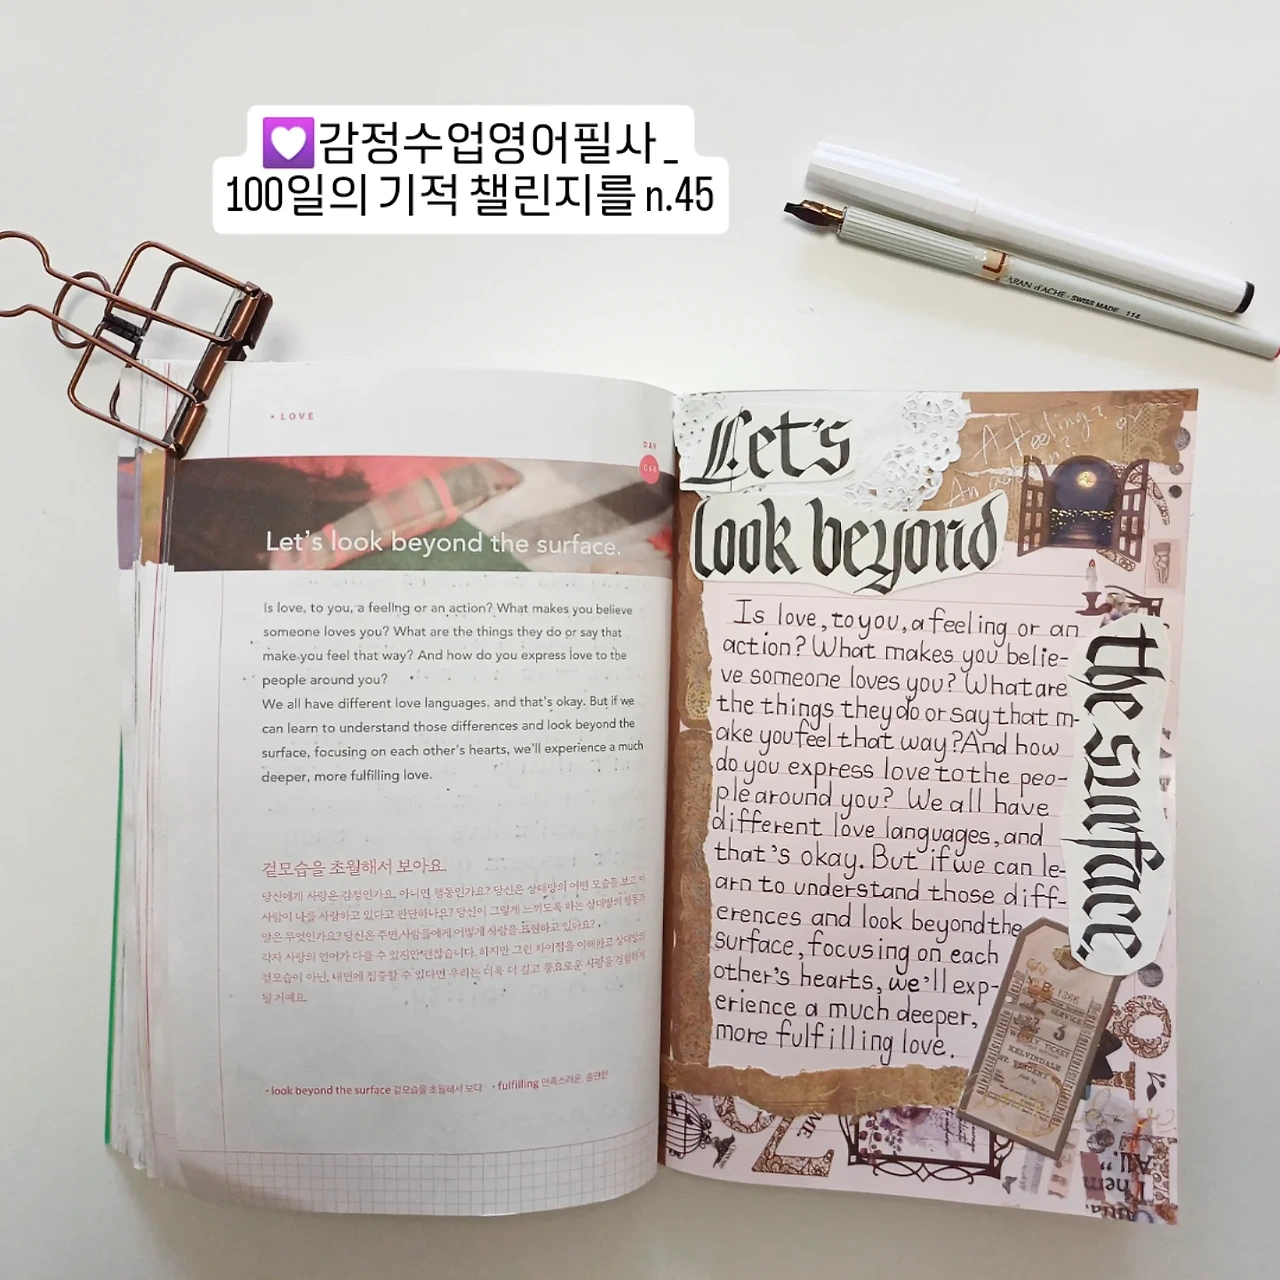 💟감정수업영어필사_
100일의 기적 챌린지를 n.45
ARAN d'ACHE · SWISS MADE 114
+ LOVE
DAY
064
Let's look beyond the surface.
Is love, to you, a feeling or an action? What makes you believe
someone loves you? What are the things they do or say that
make you feel that way? And how do you express love to the
people around you?
We all have different love languages, and that's okay. But if we
can learn to understand those differences and look beyond the
surface, focusing on each other's hearts, we'll experience a much
deeper, more fulfilling love.
겉모습을 초월해서 보아요.
당신에게 사랑은 감정인가요, 아니면 행동인가요? 당신은 상대방의 어떤 모습을 보고 이
사람이 나를 사랑하고 있다고 판단하나요? 당신이 그렇게 느끼도록 하는 상대방의 행동과
말은 무엇인가요? 당신은 주변 사람들에게 어떻게 사랑을 표현하고 있나요?
각자 사랑의 언어가 다를 수 있지만 괜찮습니다. 하지만 그런 차이점을 이해하고 상대방의
겉모습이 아닌, 내면에 집중할 수 있다면 우리는 더욱 더 깊고 풍요로운 사랑을 경험하게
될 거예요.
• look beyond the surface 겉모습을 초월해서 보다 • fulfilling 만족스러운, 충만한
Let's
look beyond
the surface.
A feeling? or
An action?
Is love, to you, a feeling or an
action? What makes you belie-
ve someone loves you? What are
the things they do or say that m-
ake you feel that way? And how
do you express love to the peo-
ple around you? We all have
different love languages, and
that's okay. But if we can le-
arn to understand those diff-
erences and look beyond the
surface, focusing on each
other's hearts, we'll exp-
erience a much deeper,
more fulfilling love.
Nº B 1366
SERVICE
3
TICKET
KELVINDALE
ST. VINCENT